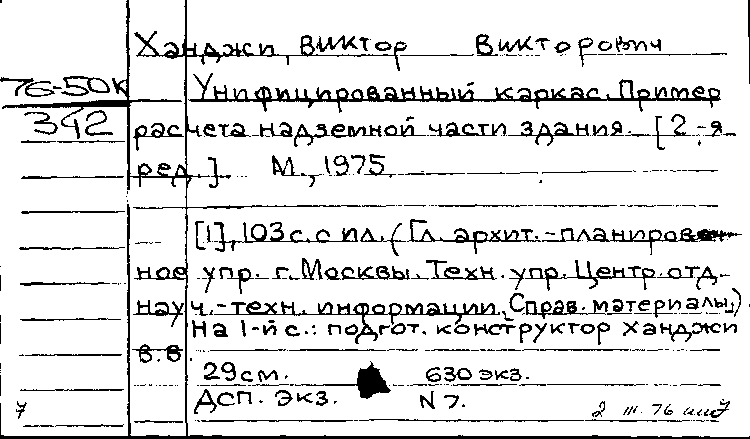 Ханджи, Виктор Викторович
76-50к
Унифицированный каркас. Пример
342
расчета надземной части здания. [2-я
ред.]. М., 1975.
[1], 103 с. с ил. (Гл. архит.-планировоч
ное упр. г. Москвы. Техн. упр. Центр. отд.
науч.-техн. информации. Справ. материалы.)
На 1-й с.: подгот. конструктор Ханджи
В.В.
29см. 630 экз.
ДСП. Экз. N 7.
7 2 III. 76